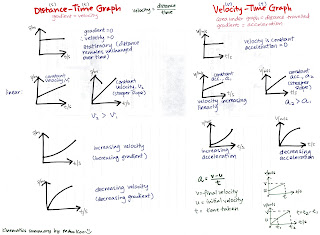 Distance-Time Graph
gradient = velocity
velocity = distance/time
s/m
t/s
gradient = 0
velocity = 0
stationary (distance remains unchanged over time)
linear
s/m
constant velocity, v₁
t/s
s/m
constant velocity, v₂
(steeper slope)
t/s
v₂ > v₁
s/m
t/s
increasing velocity
(increasing gradient)
s/m
t/s
decreasing velocity
(decreasing gradient)
Velocity-Time Graph
area under graph = distance travelled
gradient = acceleration
v/m/s
t/s
velocity is constant
acceleration = 0
constant acc, a₁
t/s
velocity increasing
constant acc, a₂
t/s
a₂ > a₁
t/s
increasing acceleration
t/s
decreasing acceleration
a = v-u/t
v = final velocity
u = initial velocity
t = time taken
Kinematics summary by